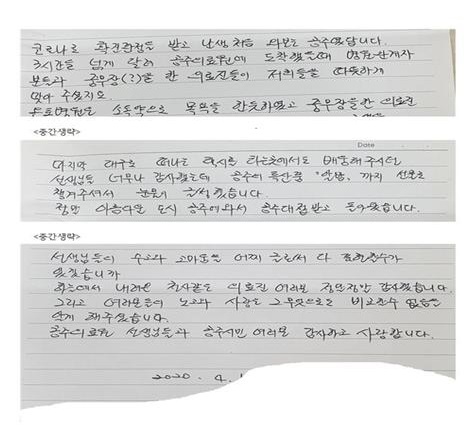 코로나로 확진판정을 받고 난생처음 와보는 공주였답니다.
3시간을 넘게 달려 공주의료원에 도착했을때 병원관계자
분들과 중무장(?)을 한 의료진들이 저희들을 따뜻하게
맞아 주셨지요
소독약으로 목욕을 하였고 중무장을한 의료진
<중간생략>
Date
마지막 대구로 떠나는 택시를 타는곳에서도 배웅해주시던
선생님들 너무나 감사했는데 공주에 특산품 "알밤" 까지 선물로
챙겨주셔서 눈물이 글썽였습니다.
정말 아름다운 도시 공주에와서 공주대접받고 돌아왔습니다.
<중간생략>
선생님들의 수고와 고마움을 어찌 글로써 다 표현할수가
있겠습니까
하늘에서 내려온 천사같은 의료진 여러분 정말정말 감사했습니다.
그리고 여러분들의 노고와 사랑은 그무엇으로도 비교할수 없음을
알게 해주셨습니다.
공주의료원 선생님들과 공주시민 여러분 감사하고 사랑합니다.
2020. 4.